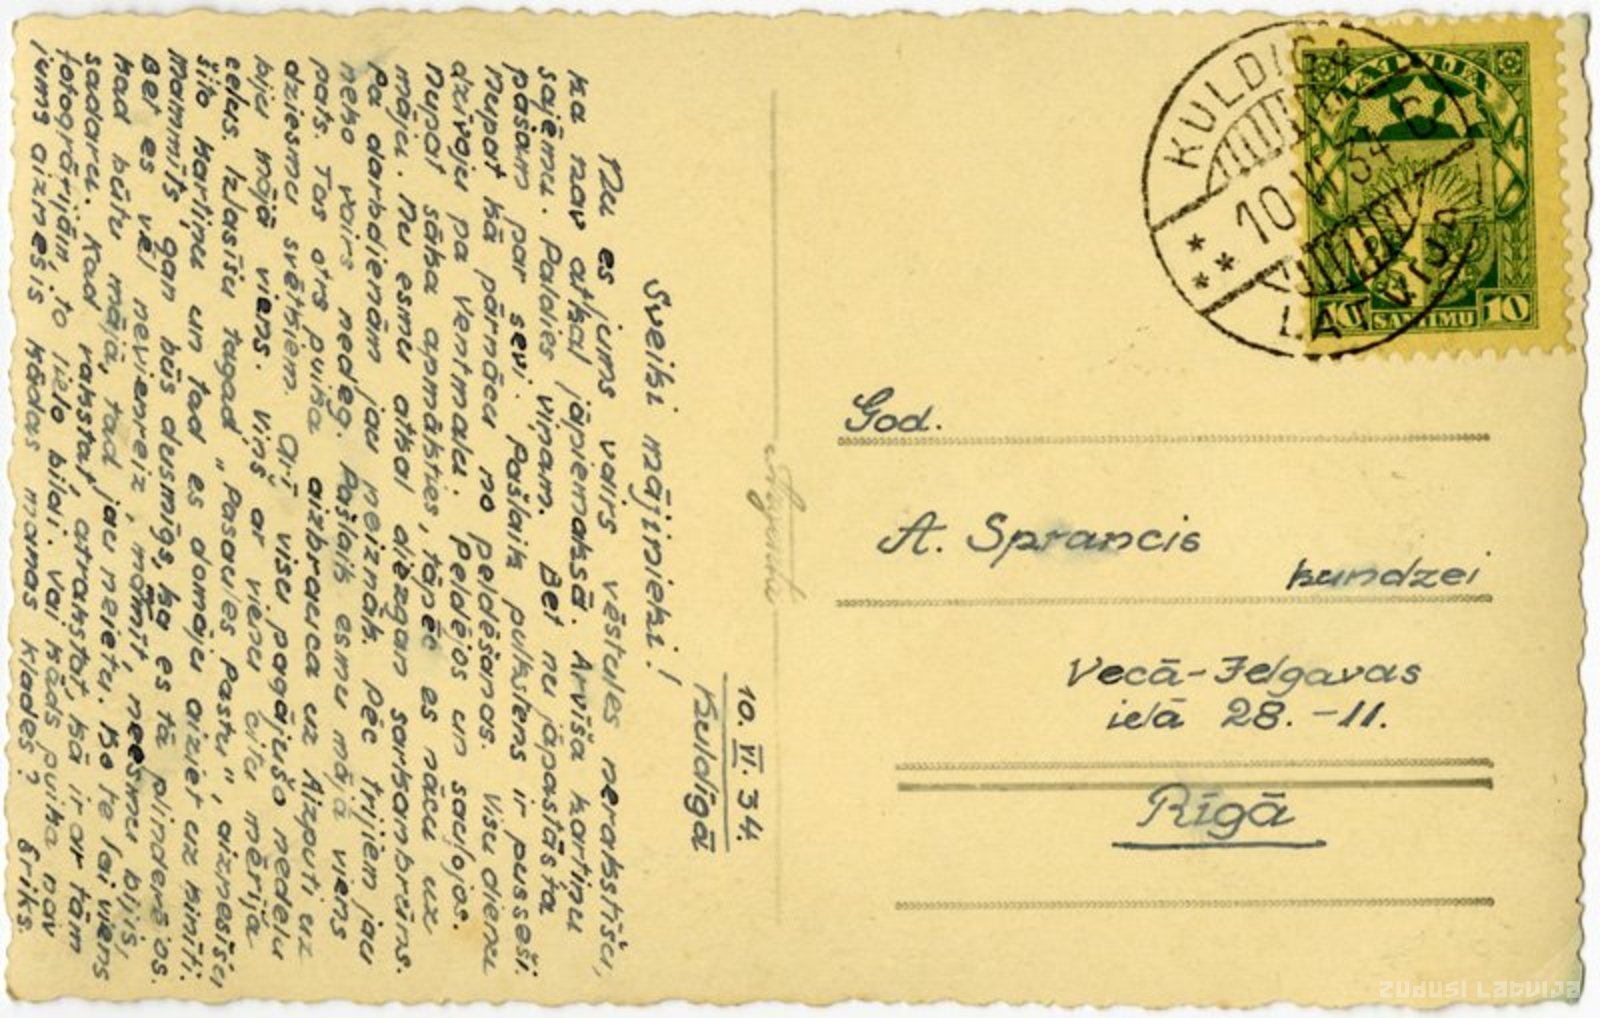 10. VI. 34.
Kuldīgā
Sveiki mājinieki!
Nu es jums vairs vēstules nerakstīšu,
ka nav atkal jāpiemaksā. Arvīša kartiņu
saņēmu. Paldies viņam. Bet nu jāpastāsta
pašam par sevi. Pašlaik pulkstens ir pusseši
nupat kā pārnācu no peldēšanas. Visu dienu
dzīvoju pa Ventmalu. Peldējos un sauļojos.
Nupat sāka apmākties, tāpēc es nācu uz
māju. Nu esmu atkal diezgan sarkanbrūns.
Pa darbdienām jau neiznāk. Pēc trijiem jau
neko vairs nedeg. Pašlaik esmu mājā viens
pats. Tas otrs puika aizbrauca uz Aizputi uz
dziesmu svētkiem. Arī visu pagājušo nedēļu
biju mājā viens. Viņš ar vienu citu mērīja
ceļus. Izlasīšu tagad „Pasaules Pastu", aiznesīšu
šito kartiņu un tad es domāju aiziet uz kino.
Mammīts gan būs dusmīgs, ka es tā plinderējos.
Bet es vēl nevienreiz, mammīt, neesmu bijis,
kad būtu mājā, tad jau neietu. Ko te lai viens
sadara. Kad rakstat, atrakstat, kā ir ar tām
fotogrāfijām, to lielo bildi. Vai kāds puika nav
jums aiznesis kādas manas klades? Ēriks.
KULDIGA
10 VI 34 G
LATVIJA
LATVIJA
10 SANTIMU 10
God.
A. Sprancis
kundzei
Vecā-Jelgavas
ielā 28.-11.
Rīgā
ZUDUSI LATVIJA